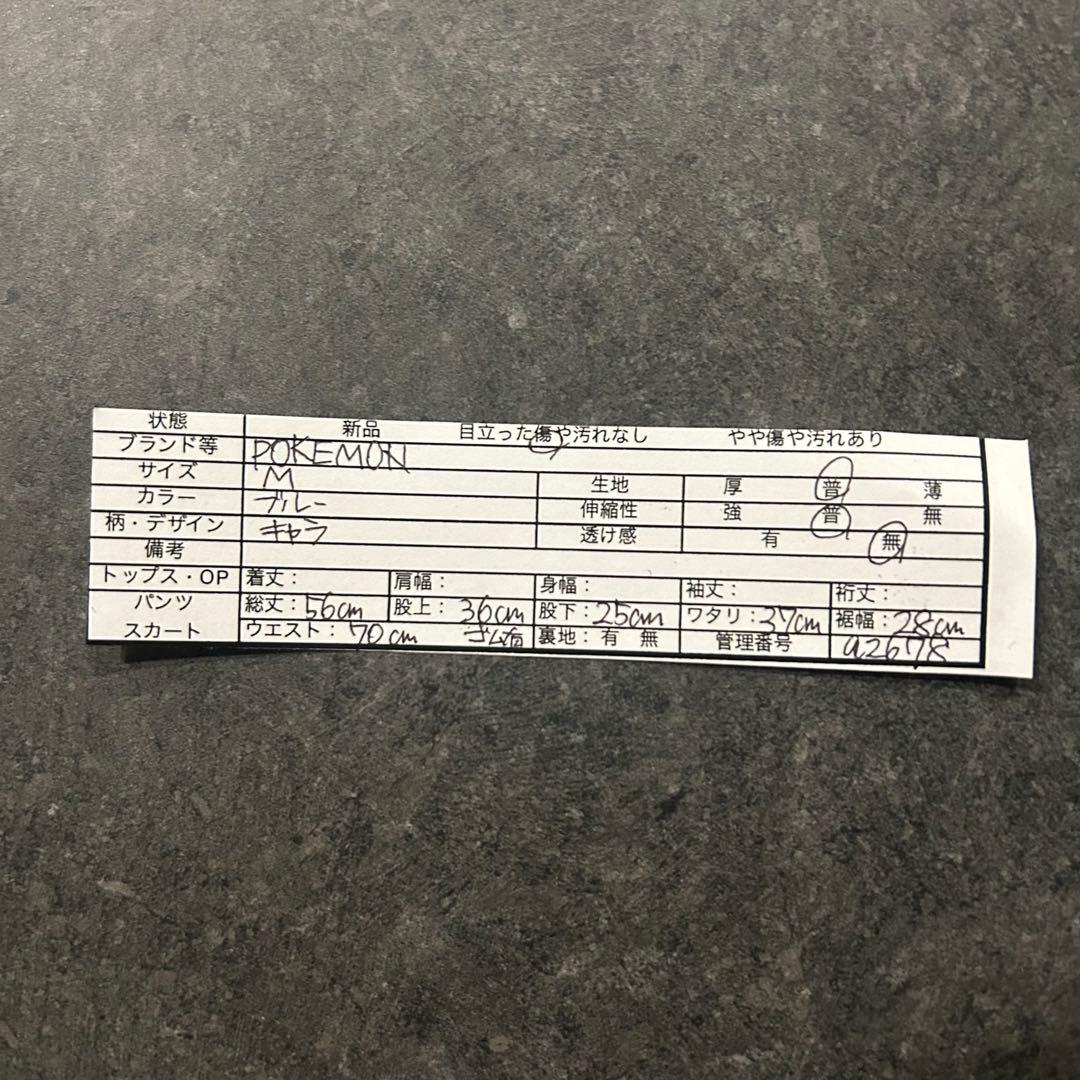 状態 新品 目立った傷や汚れなし やや傷や汚れあり
ブランド等 POKEMON
サイズ M 生地 厚 普 薄
カラー ブルー 伸縮性 強 普 無
柄・デザイン キャラ 透け感 有 無
備考
トップス・OP 着丈: 肩幅: 身幅: 袖丈: 裄丈:
パンツ 総丈:56cm 股上:36cm 股下:25cm ワタリ:37cm 裾幅:28cm
スカート ウエスト:70cm ゴム有 裏地:有 無 管理番号 a2678